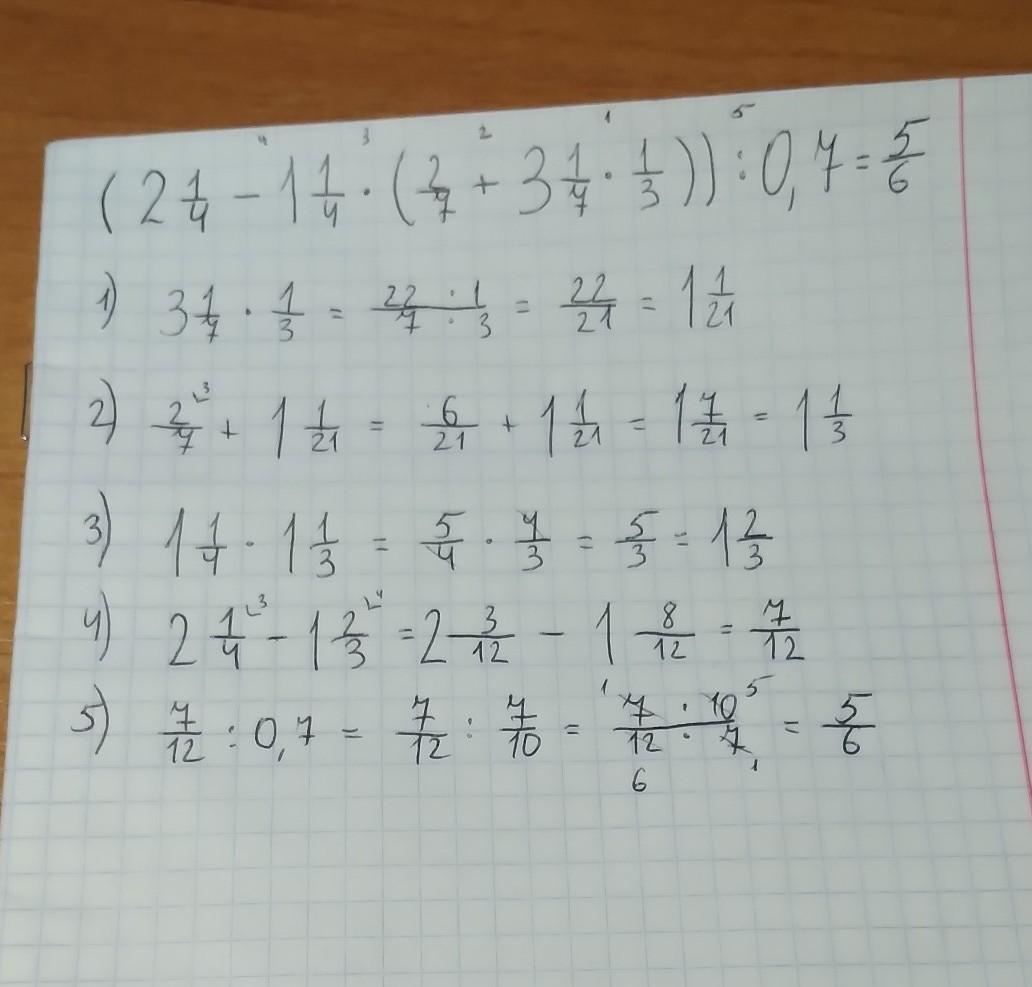 (2 1/4 - 1 1/4 · (2/7 + 3 1/7 · 1/3)) : 0,7 = 5/6
1) 3 1/7 · 1/3 = 22 · 1/7 · 3 = 22/21 = 1 1/21
2) 2/7 + 1 1/21 = 6/21 + 1 1/21 = 1 7/21 = 1 1/3
3) 1 1/4 · 1 1/3 = 5/4 · 4/3 = 5/3 = 1 2/3
4) 2 1/4 - 1 2/3 = 2 3/12 - 1 8/12 = 7/12
5) 7/12 : 0,7 = 7/12 : 7/10 = 7 · 10/12 · 7 = 5/6